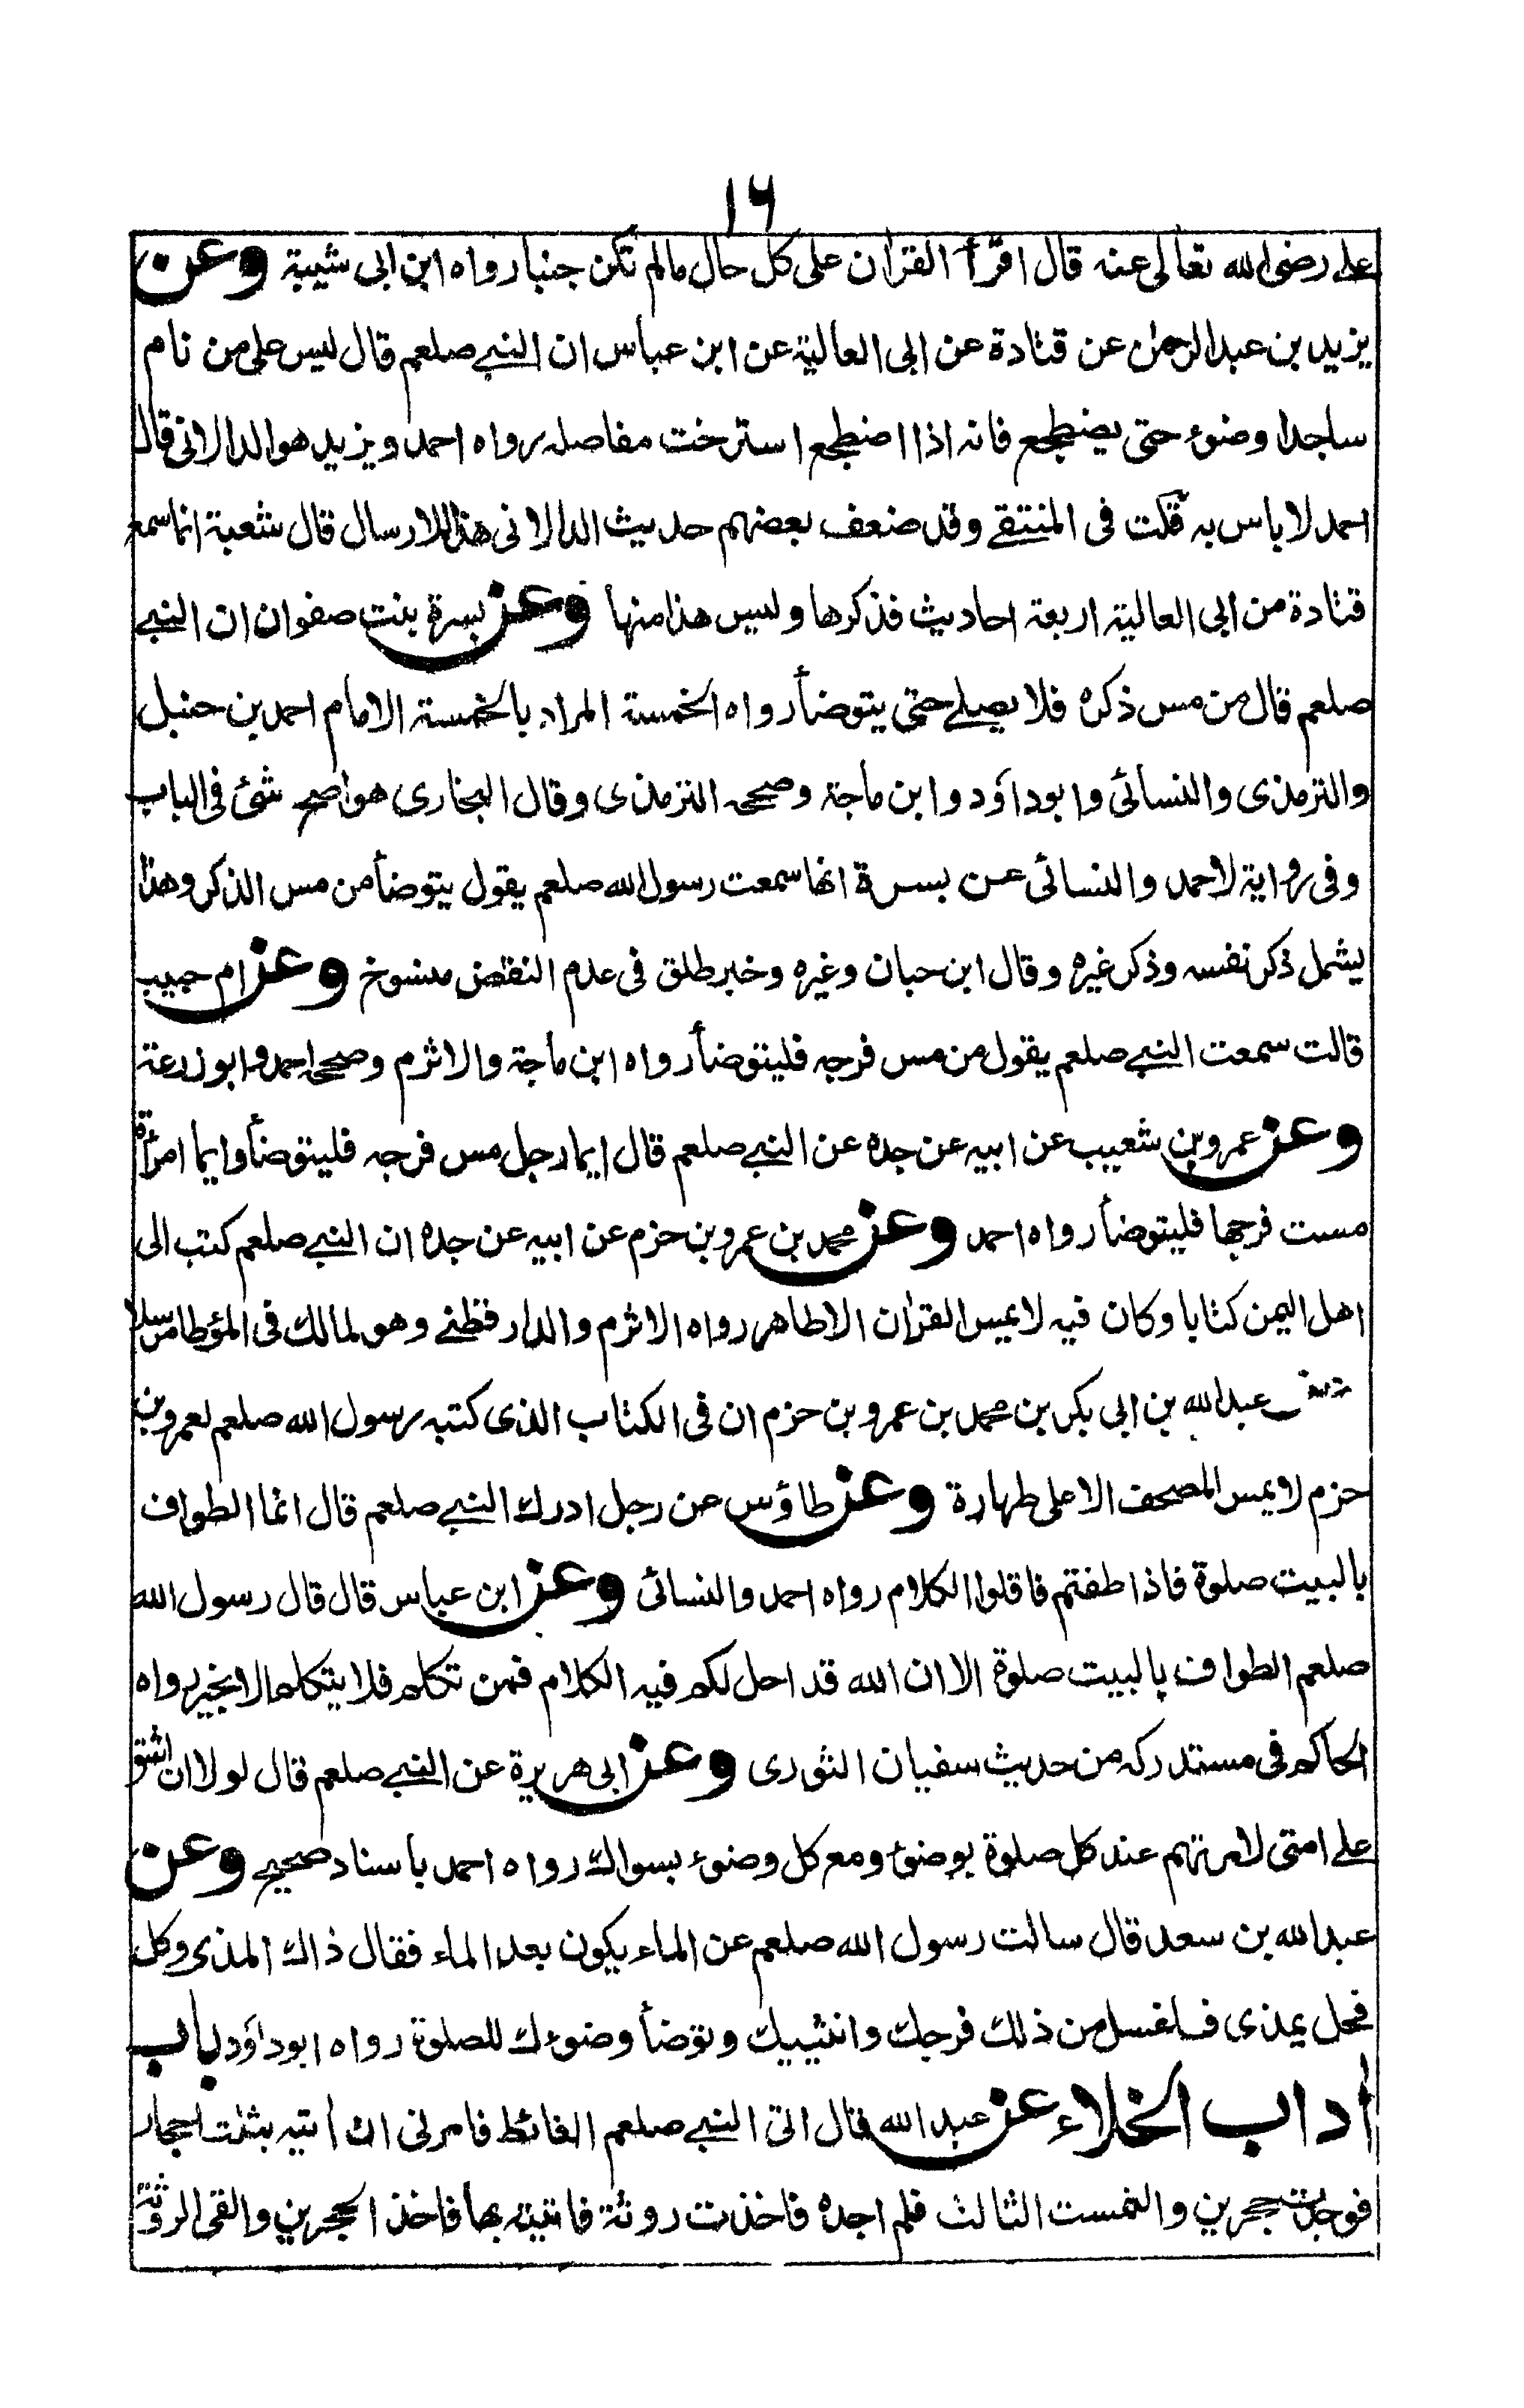 ١٦
علے رضی الله تعالی عنہ قال اقرأ القران علی کل حال مالم تکن جنبا رواہ ابن ابی شیبۃ وعن
یزید بن عبدالرحمن عن قتادة عن ابی العالیۃ عن ابن عباس ان النبے صلعم قال لیس علی من نام
ساجدا وضوء حتی یضطجع فانہ اذا اضطجع استرخت مفاصلہ رواہ احمد ویزید هوالدالانی قال
احمد لا باس بہ قلت فی المنتقے وقد ضعف بعضهم حدیث الدالانی هذا للارسال قال شعبۃ انما سمع
قتادة من ابی العالیۃ اربعۃ احادیث فذکرها ولیس هذا منها وعن بسرة بنت صفوان ان النبے
صلعم قال من مس ذکرہ فلا یصلے حتی یتوضأ رواہ الخمسۃ المراد بالخمسۃ الامام احمد بن حنبل
والترمذی والنسائی وابوداؤد وابن ماجۃ وصححہ الترمذی وقال البخاری هو اصح شئ فی الباب
وفی روایۃ لاحمد والنسائی عن بسرة انها سمعت رسول الله صلعم یقول یتوضأ من مس الذکر وهذا
یشمل ذکر نفسہ وذکر غیرہ وقال ابن حبان وغیرہ وخبر طلق فی عدم النقض منسوخ وعن ام حبیبۃ
قالت سمعت النبے صلعم یقول من مس فرجہ فلیتوضأ رواہ ابن ماجۃ والاثرم وصححہ احمد وابو زرعۃ
وعن عمرو بن شعیب عن ابیہ عن جدہ عن النبے صلعم قال ایما رجل مس فرجہ فلیتوضأ وایما امرأۃ
مست فرجها فلیتوضأ رواہ احمد وعن محمد بن عمرو بن حزم عن ابیہ عن جدہ ان النبے صلعم کتب الی
اهل الیمن کتابا وکان فیہ لا یمس القران الا طاهر رواہ الاثرم والدارقطنے وهو لمالک فی المؤطا مرسلا
عبدالله بن ابی بکر بن محمد بن عمرو بن حزم ان فی الکتاب الذی کتبہ رسول الله صلعم لعمرو بن
حزم لا یمس المصحف الا علی طهارة وعن طاؤس عن رجل ادرک النبے صلعم قال انما الطواف
بالبیت صلوة فاذا طفتم فاقلوا الکلام رواہ احمد والنسائی وعن ابن عباس قال قال رسول الله
صلعم الطواف بالبیت صلوة الا ان الله قد احل لکم فیہ الکلام فمن تکلم فلا یتکلم الا بخیر رواہ
الحاکم فی مستدرکہ من حدیث سفیان الثوری وعن ابی هریرة عن النبے صلعم قال لولا ان اشق
علے امتی لامرتهم عند کل صلوة بوضوء ومع کل وضوء بسواک رواہ احمد باسناد صحیح وعن
عبدالله بن سعد قال سالت رسول الله صلعم عن الماء یکون بعد الماء فقال ذاک المذی وکل
فحل یمذی فتغسل من ذلک فرجک وانثییک وتوضأ وضوءک للصلوة رواہ ابوداؤد باب
اداب الخلاء عن عبدالله قال اتی النبے صلعم الغائط فامرنی ان أتیہ بثلث احجار
فوجدت حجرین والتمست الثالث فلم اجدہ فاخذت روثۃ فاتیتہ بها فاخذ الحجرین والقی الروثۃ